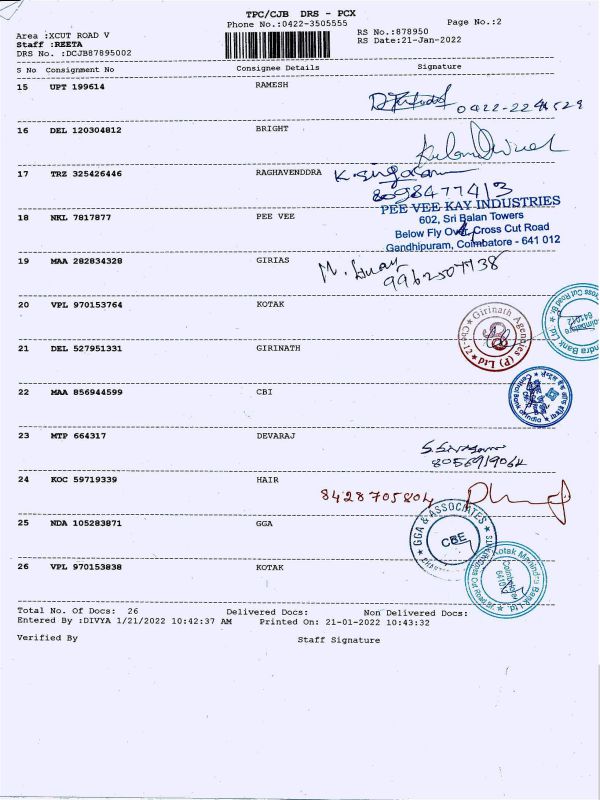 TPC/CJB DRS - PCX
Phone No.:0422-3505555
Page No.:2
Area :XCUT ROAD V
RS No.:878950
Staff :REETA
RS Date:21-Jan-2022
DRS No. :DCJB87895002
S No Consignment No Consignee Details Signature
15 UPT 199614 RAMESH
16 DEL 120304812 BRIGHT
17 TRZ 325426446 RAGHAVENDDRA
8098477413
PEE VEE KAY INDUSTRIES
602, Sri Balan Towers
18 NKL 7817877 PEE VEE
Below Fly Over, Cross Cut Road
Gandhipuram, Coimbatore - 641 012
19 MAA 282834328 GIRIAS
9962507738
20 VPL 970153764 KOTAK
Girinath Agencies (P) Ltd
Cbe-12
21 DEL 527951331 GIRINATH
22 MAA 856944599 CBI
Central Bank of India
23 MTP 664317 DEVARAJ
8056919064
24 KOC 59719339 HAIR
8428705804
25 NDA 105283871 GGA
GGA & ASSOCIATES
CBE
26 VPL 970153838 KOTAK
Kotak Mahindra Bank Ltd.
Total No. Of Docs: 26 Delivered Docs: Non Delivered Docs:
Entered By :DIVYA 1/21/2022 10:42:37 AM Printed On: 21-01-2022 10:43:32
Verified By Staff Signature